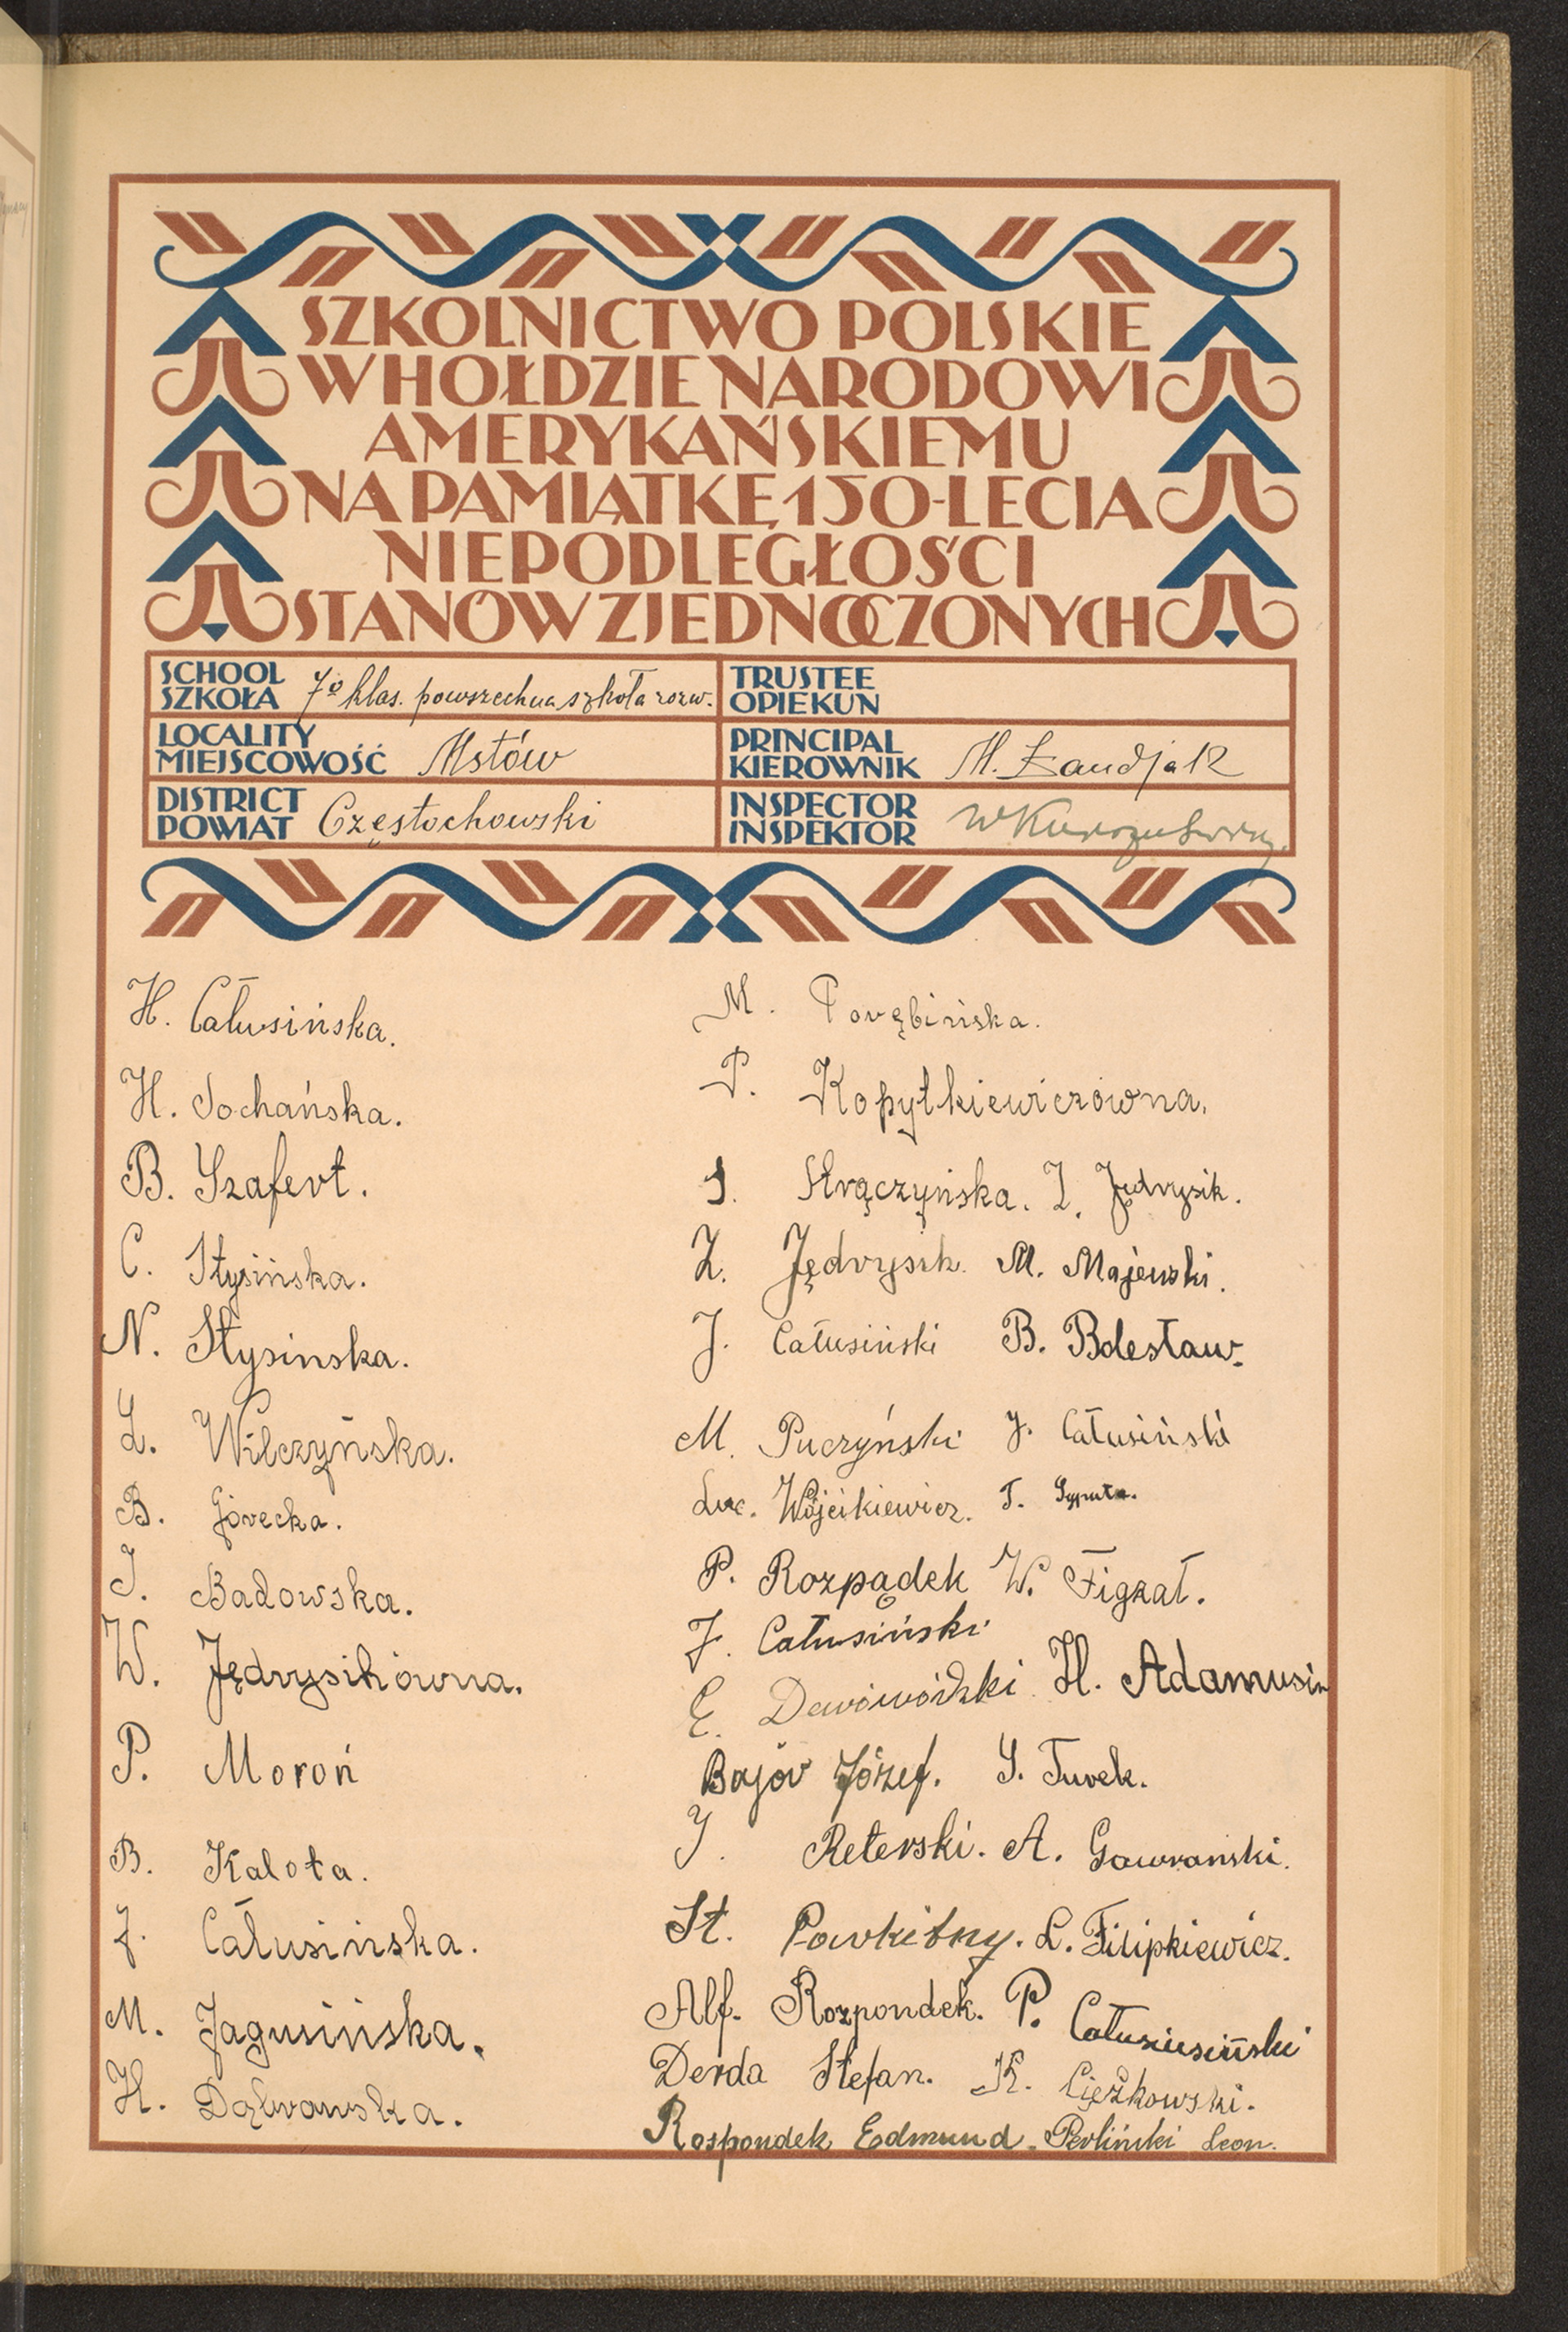 SZKOLNICTWO POLSKIE
W HOŁDZIE NARODOWI
AMERYKAŃSKIEMU
NA PAMIĄTKĘ 150-LECIA
NIEPODLEGŁOŚCI
STANÓW ZJEDNOCZONYCH
SCHOOL
SZKOŁA 7o klas. powszechna szkoła rozw.
TRUSTEE
OPIEKUN
LOCALITY
MIEJSCOWOŚĆ Mstów
PRINCIPAL
KIEROWNIK M. Żandjak
DISTRICT
POWIAT Częstochowski
INSPECTOR
INSPEKTOR
H. Całusińska.
H. Sochańska.
B. Szafert.
C. Stysińska.
N. Stysinska.
Z. Wilczyńska.
B. Górecka.
J. Badowska.
W. Jędrysikówna.
P. Moroń
B. Kalota.
J. Całusińska.
M. Jagusińska.
H. Dąbrowska.
M. Porębińska.
P. Kopytkiewiczówna.
S. Strączyńska. Z. Jędrysik.
Z. Jędrysik. M. Majewski.
J. Całusiński B. Bolesław.
M. Puczyński J. Całusiński
Luc. Wójcikiewicz. T. Sypuła.
P. Rozpądek W. Figzał.
J. Całusiński
E. H. Adamusin
Bajor Józef. S. Turek.
J. Reterski. A. Gawroński.
St. Parkitny. L. Filipkiewicz.
Alf. Rozpondek. P. Całusiusiński
Derda Stefan. K. Ciężkowski.
Rospondek Edmund. Perliński Leon.